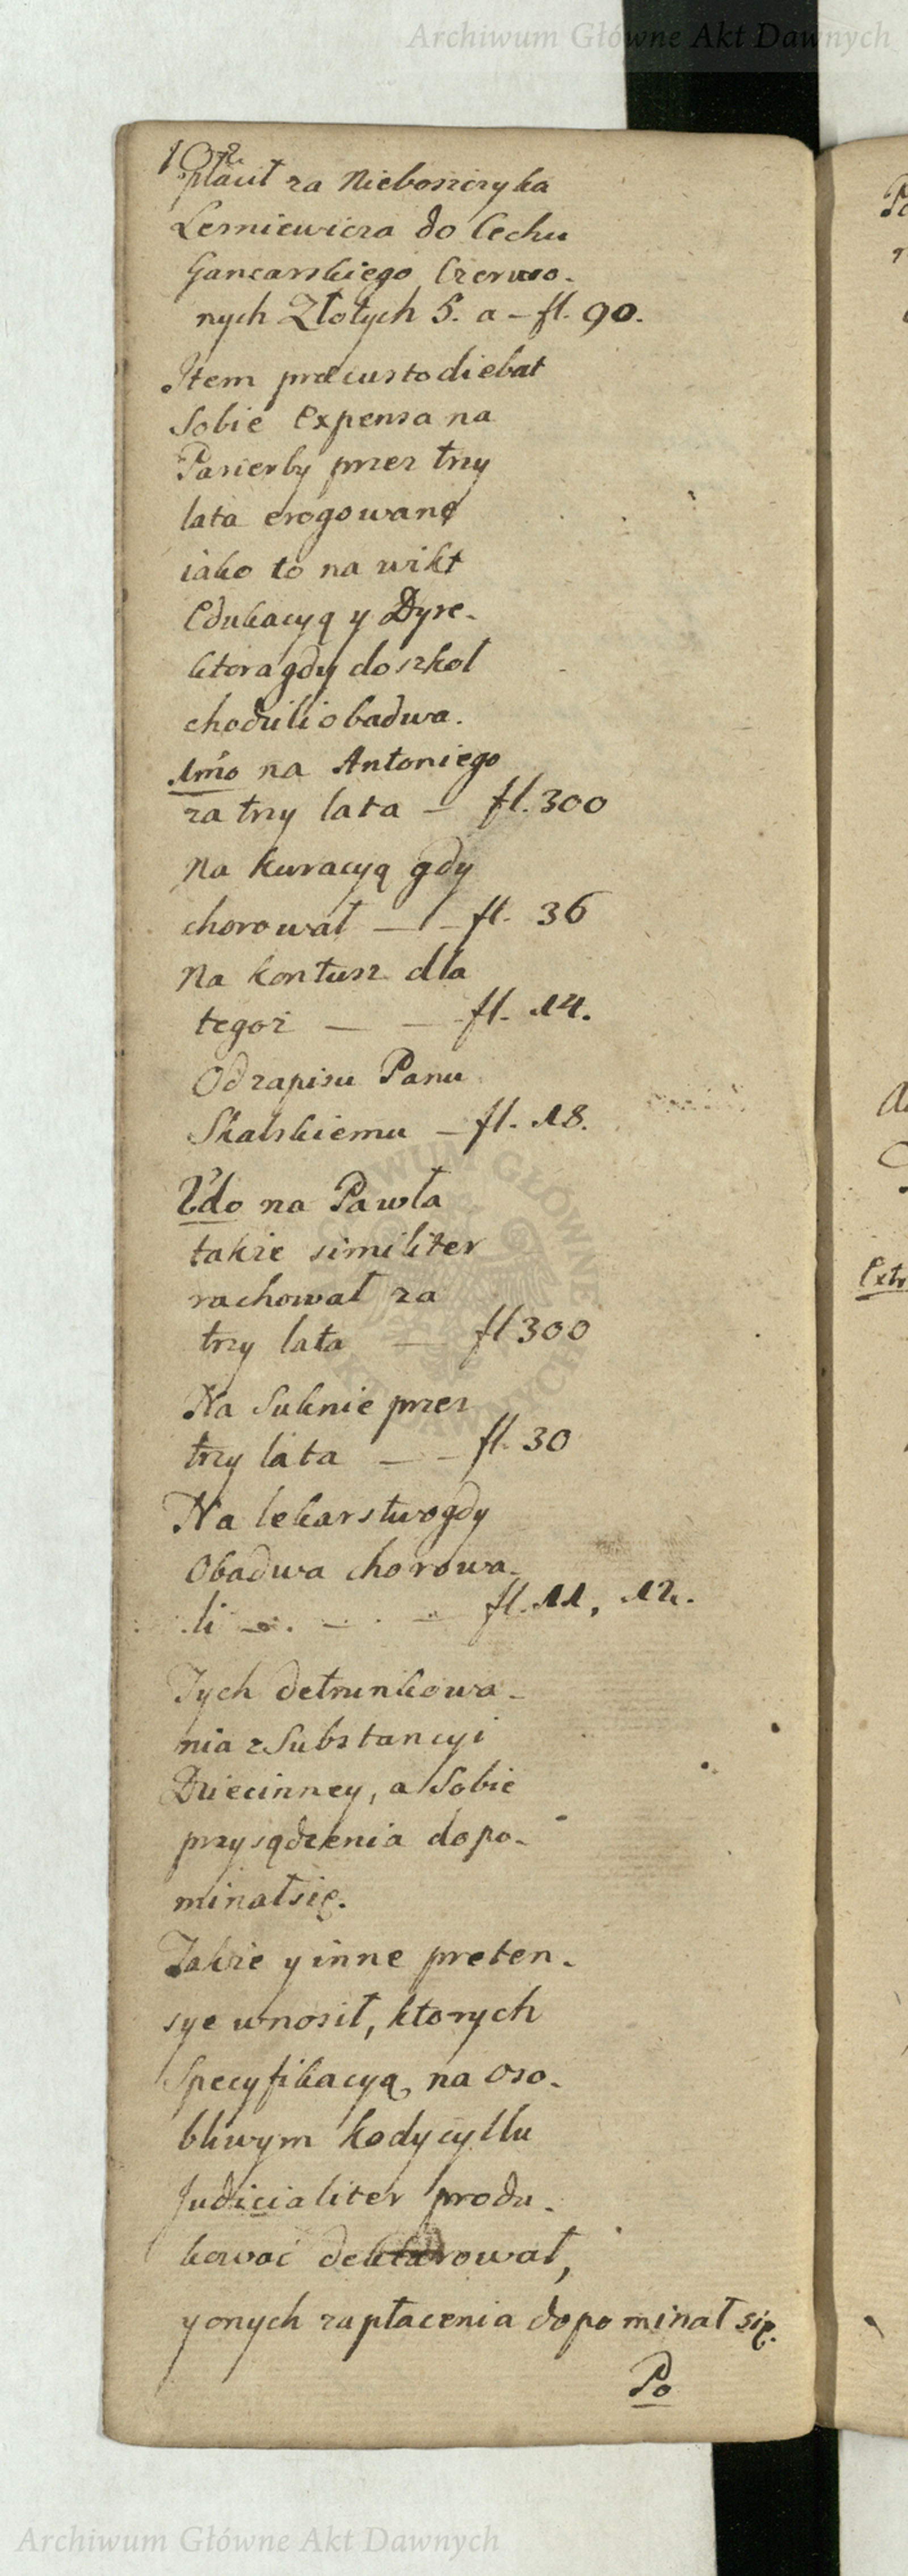 Archiwum Główne Akt Dawnych
102
płacił za Nieboszczyka
Lesniewicza do Cechu
Gancarskiego Czerwo-
nych Złotych 5. a – fl. 90.
Item præcustodiebat
Sobie Expensa na
Pasierby przez trzy
lata erogowane
iako to na wikt
Edukacyą y Dyre-
ktora gdy do szkoł
chodzili obadwa.
1mo na Antoniego
za trzy lata – fl. 300
Na kuracyą gdy
chorował — – fl. 36
Na kontusz dla
tegoż — — fl. 14.
Od zapisu Panu
Skalskiemu – fl. 18.
2do na Pawła
także similiter
rachował za
trzy lata — fl 300
Na Suknie przez
trzy lata — – fl. 30
Na lekarstwo gdy
Obadwa chorowa-
li — . — . — fl. 11, 12.
Tych detrunkowa-
nia z Substancyi
Dziecinney, a Sobie
przysądzenia dopo-
minał się.
Także y inne preten-
sye wnosił, ktorych
Specyfikacyą na oso-
bliwym kodycyllu
Judicialiter produ-
kować deklarował,
y onych zapłacenia dopominał się.
Po
Archiwum Główne Akt Dawnych